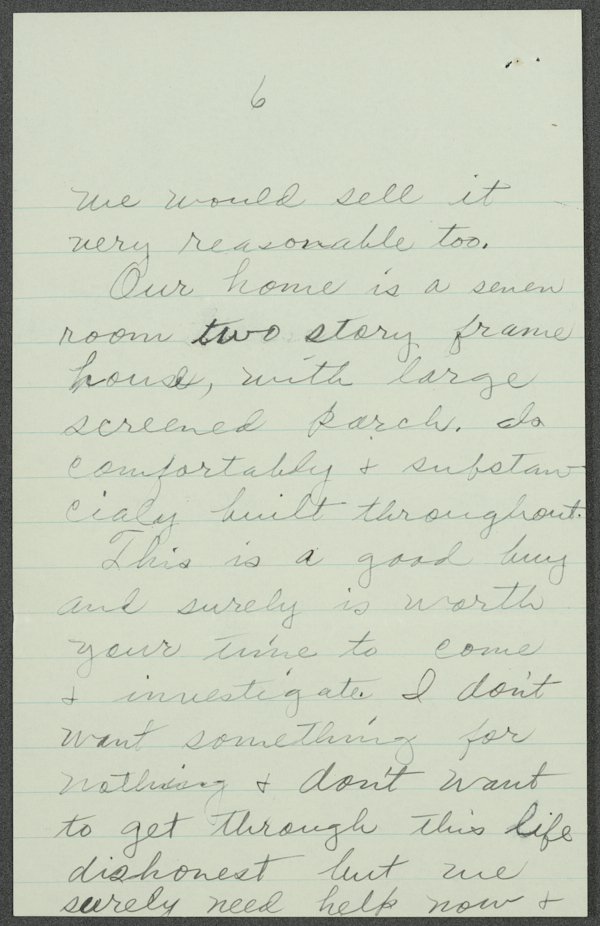 6
we would sell it
very reasonable too.
Our home is a seven
room two story frame
house, with large
screened parch. Is
comfortably & substan-
cialy built throughout.
This is a good buy
and surely is worth
your time to come
& investigate. I don't
want something for
nothing & don't want
to get through this life
dishonest but we
surely need help now &